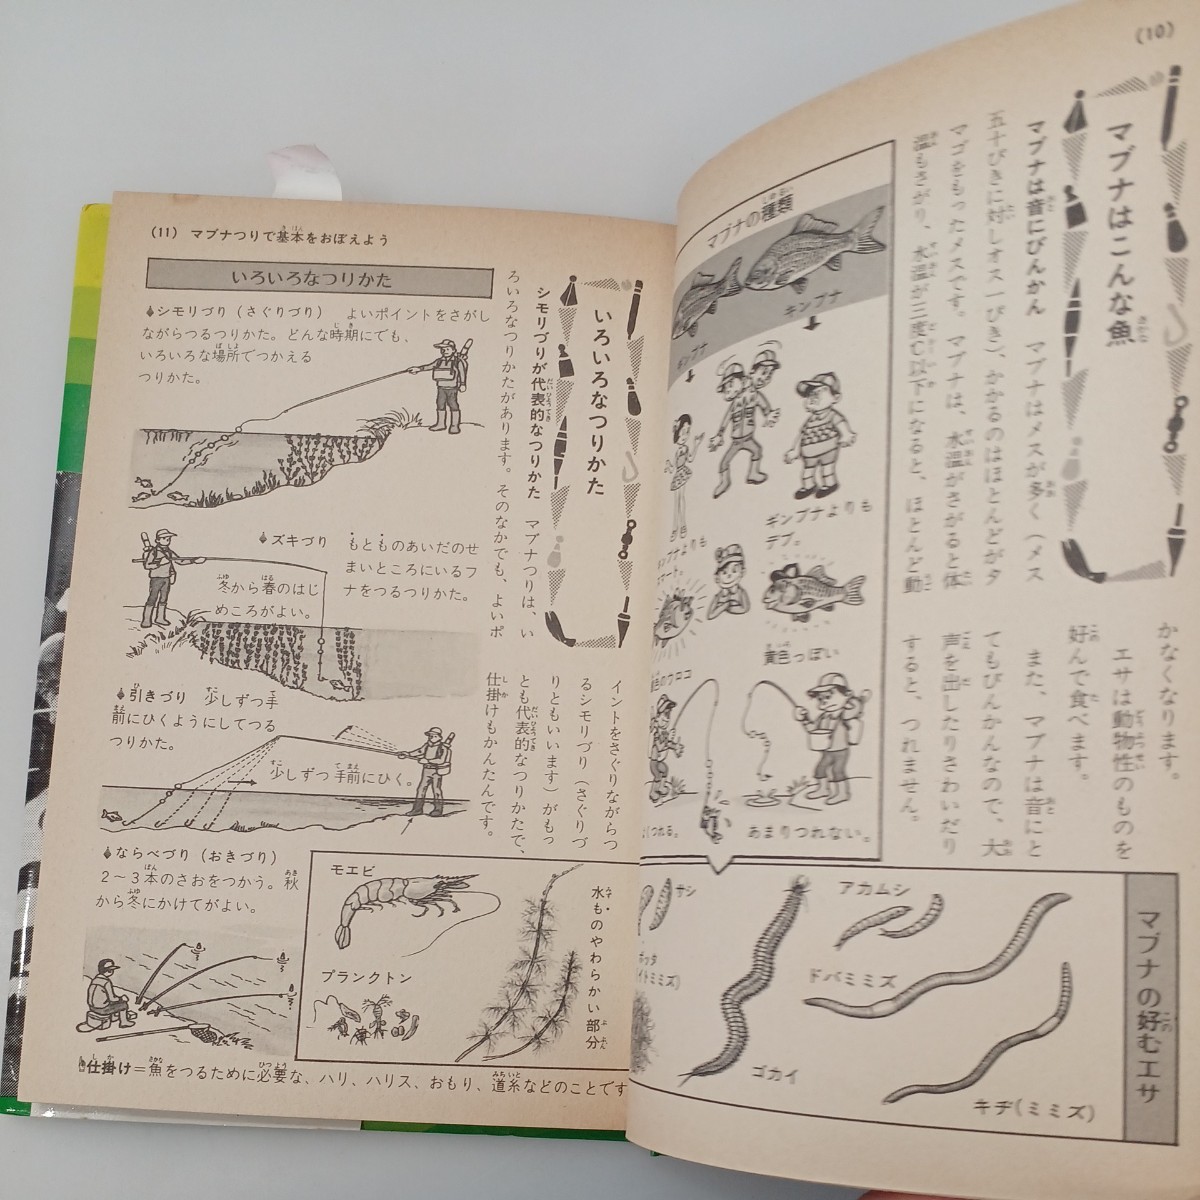 (10)
マブナはこんな魚
マブナは音にびんかん　マブナはメスが多く(メス
五十ぴきに対しオス一ぴき)、かかるのはほとんどがタ
マゴをもったメスです。マブナは、水温がさがると体
温もさがり、水温が三度C以下になると、ほとんど動
かなくなります。
エサは動物性のものを
好んで食べます。
また、マブナは音にと
てもびんかんなので、大
声を出したりさわいだり
すると、つれません。
マブナの種類
キンブナ
ギンブナ
ギンブナよりも
デブ。
黄色っぽい
あまりつれない。
マブナの好むエサ
サシ
アカムシ
ドバミミズ
イトミミズ)
ゴカイ
キヂ(ミミズ)
(11) マブナつりで基本をおぼえよう
いろいろなつりかた
シモリづりが代表的なつりかた　マブナつりは、い
ろいろなつりかたがあります。そのなかでも、よいポ
イントをさぐりながらつ
るシモリづり(さぐりづ
りともいいます)がもっ
とも代表的なつりかたで、
仕掛けもかんたんです。
いろいろなつりかた
シモリづり(さぐりづり)　よいポイントをさがし
ながらつるつりかた。どんな時期にでも、
いろいろな場所でつかえる
つりかた。
ズキづり　もとものあいだのせ
まいところにいるフ
ナをつるつりかた。
冬から春のはじ
めころがよい。
引きづり　少しずつ手
前にひくようにしてつる
つりかた。
少しずつ手前にひく。
ならべづり(おきづり)
2〜3本のさおをつかう。秋
から冬にかけてがよい。
モエビ
プランクトン
水もののやわらかい部分
仕掛け＝魚をつるために必要な、ハリ、ハリス、おもり、道糸などのことです